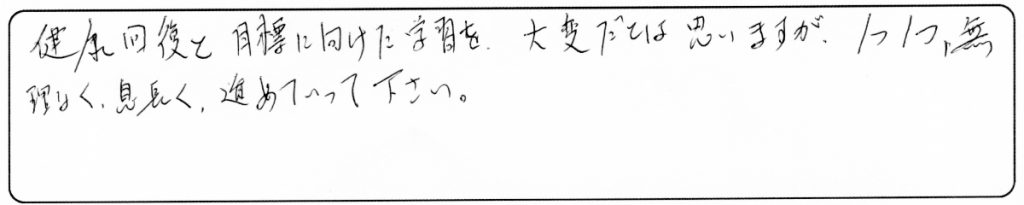 健康回復と目標に向けた学習を、大変だとは思いますが、1つ1つ、無
理なく、息長く、進めていって下さい。